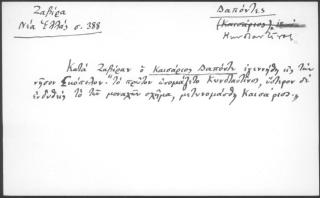 Ζαβίρα
Νέα Ἑλλάς σ. 388
Δαπόντες
(Καισάριος)
Κωνσταντῖνος
Κατά Ζαβίραν ὁ Καισάριος Δαπόντε ἐγεννήθη εἰς τὴν
νῆσον Σκόπελον. "τὸ πρῶτον ὠνομάζετο Κωνσταντῖνος, ὕστερον δὲ
ἐνδυθεὶς τὸ τῶν μοναχῶν σχῆμα, μετωνομάσθη Καισάριος."